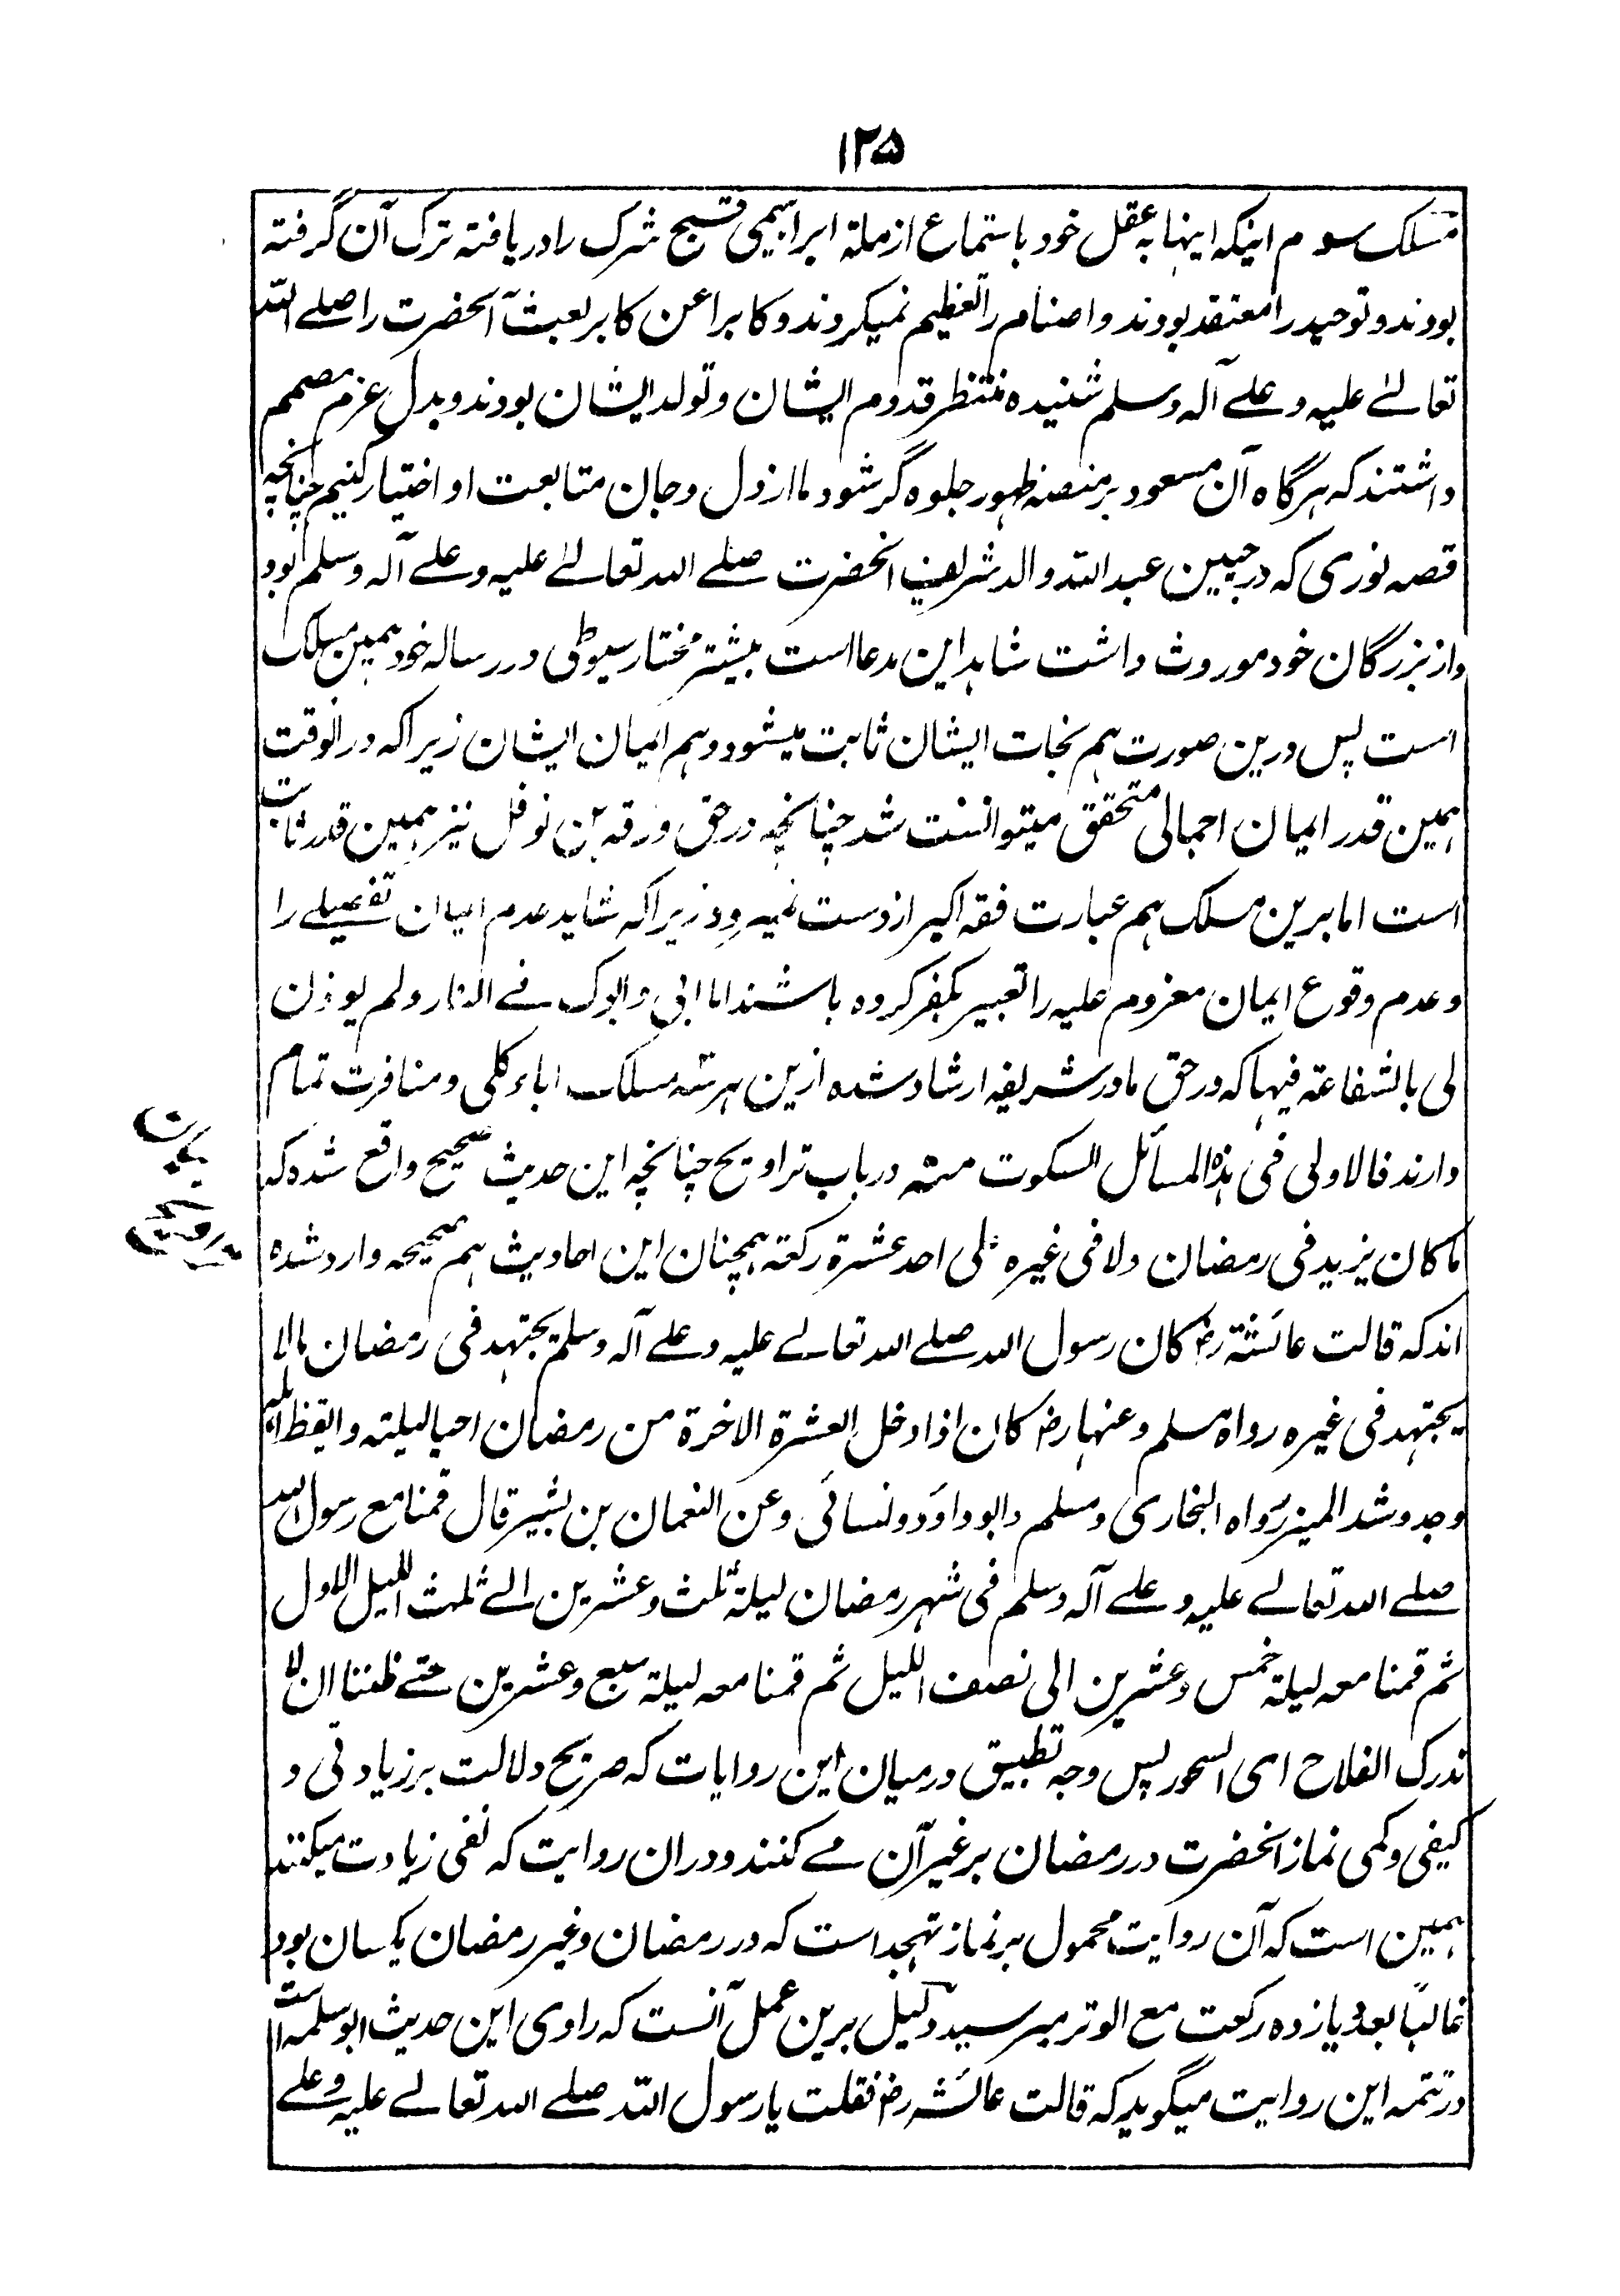 ۱۲۵
مسلک سوم اینکه اینها به عقل خود باستماع از ملة ابراهیمی قبح شرک را دریافته ترک آن گرفته
بودند و توحید را معتقد بودند و اصنام را تعظیم نمیکردند و کابرا عن کابر بعثت آنحضرت را صلے الله
تعالےٰ علیه و علے آله وسلم شنیده منتظر قدوم ایشان و تولد ایشان بودند و بدل عزم مصمم
داشتند که هرگاه آن مسعود بر منصه ظهور جلوه گر شود ما از دل و جان متابعت او اختیار کنیم چنانچه
قصه نوری که در جبین عبد الله والد شریف آنحضرت صلے الله تعالےٰ علیه وعلے آله وسلم بود
و از بزرگان خود موروث داشت شاهد این مدعا است بیشتر مختار سیوطی در رساله خود همین مسلک
است پس درین صورت هم نجات ایشان ثابت میشود و هم ایمان ایشان زیرا که در انوقت
همین قدر ایمان اجمالی متحقق میتوانست شد چنانچه در حق ورقه بن نوفل نیز همین قدر ثابت
است اما برین مسلک هم عبارت فقه اکبر از دست نمیرود زیرا که شاید عدم ایمان تفصیلے را
و عدم وقوع ایمان معزوم علیه را تعبیر بکفر کرده باشند اما ابی و ابوک فے النار و لم یوذن
لی بالشفاعة فیها که در حق مادر شریفه ارشاد شده ازین هر سه مسلک اباء کلی و منافرت تمام
دارند فالاولی فی هذه المسائل السکوت مسئله در باب تراویح چنانچه این حدیث صحیح واقع شده که
ما کان یزید فی رمضان ولا فی غیره علی احد عشرة رکعة همچنان این احادیث هم صحیحه وارد شده
اند که قالت عائشة رض کان رسول الله صلے الله تعالے علیه و علے آله وسلم یجتهد فی رمضان مالا
یجتهد فی غیره رواه مسلم و عنها رض کان اذا دخل العشرة الاخرة من رمضان احیا لیلته وایقظ اهله
وجد و شد المیزر رواه البخاری و مسلم و ابو داود و نسائی و عن النعمان بن بشیر قال قمنا مع رسول الله
صلے الله تعالے علیه و علے آله وسلم فی شهر رمضان لیلة ثلث و عشرین الے ثلث اللیل الاول
ثم قمنا معه لیلة خمس و عشرین الی نصف اللیل ثم قمنا معه لیلة سبع و عشرین حتے ظننا ان لا
ندرک الفلاح ای السحور پس وجه تطبیق درمیان این روایات که صریح دلالت بر زیادتی و
کیفی و کمی نماز آنحضرت در رمضان بر غیر آن مے کنند و در ان روایت که نفی زیادت میکنند
همین است که آن روایت محمول بر نماز تهجد است که در رمضان و غیر رمضان یکسان بود
غالباً بعدد یازده رکعت مع الوتر میرسید دلیل برین عمل آنست که راوی این حدیث ابو سلمه است
در تتمه این روایت میگوید که قالت عائشه رض فقلت یا رسول الله صلے الله تعالے علیه و علے